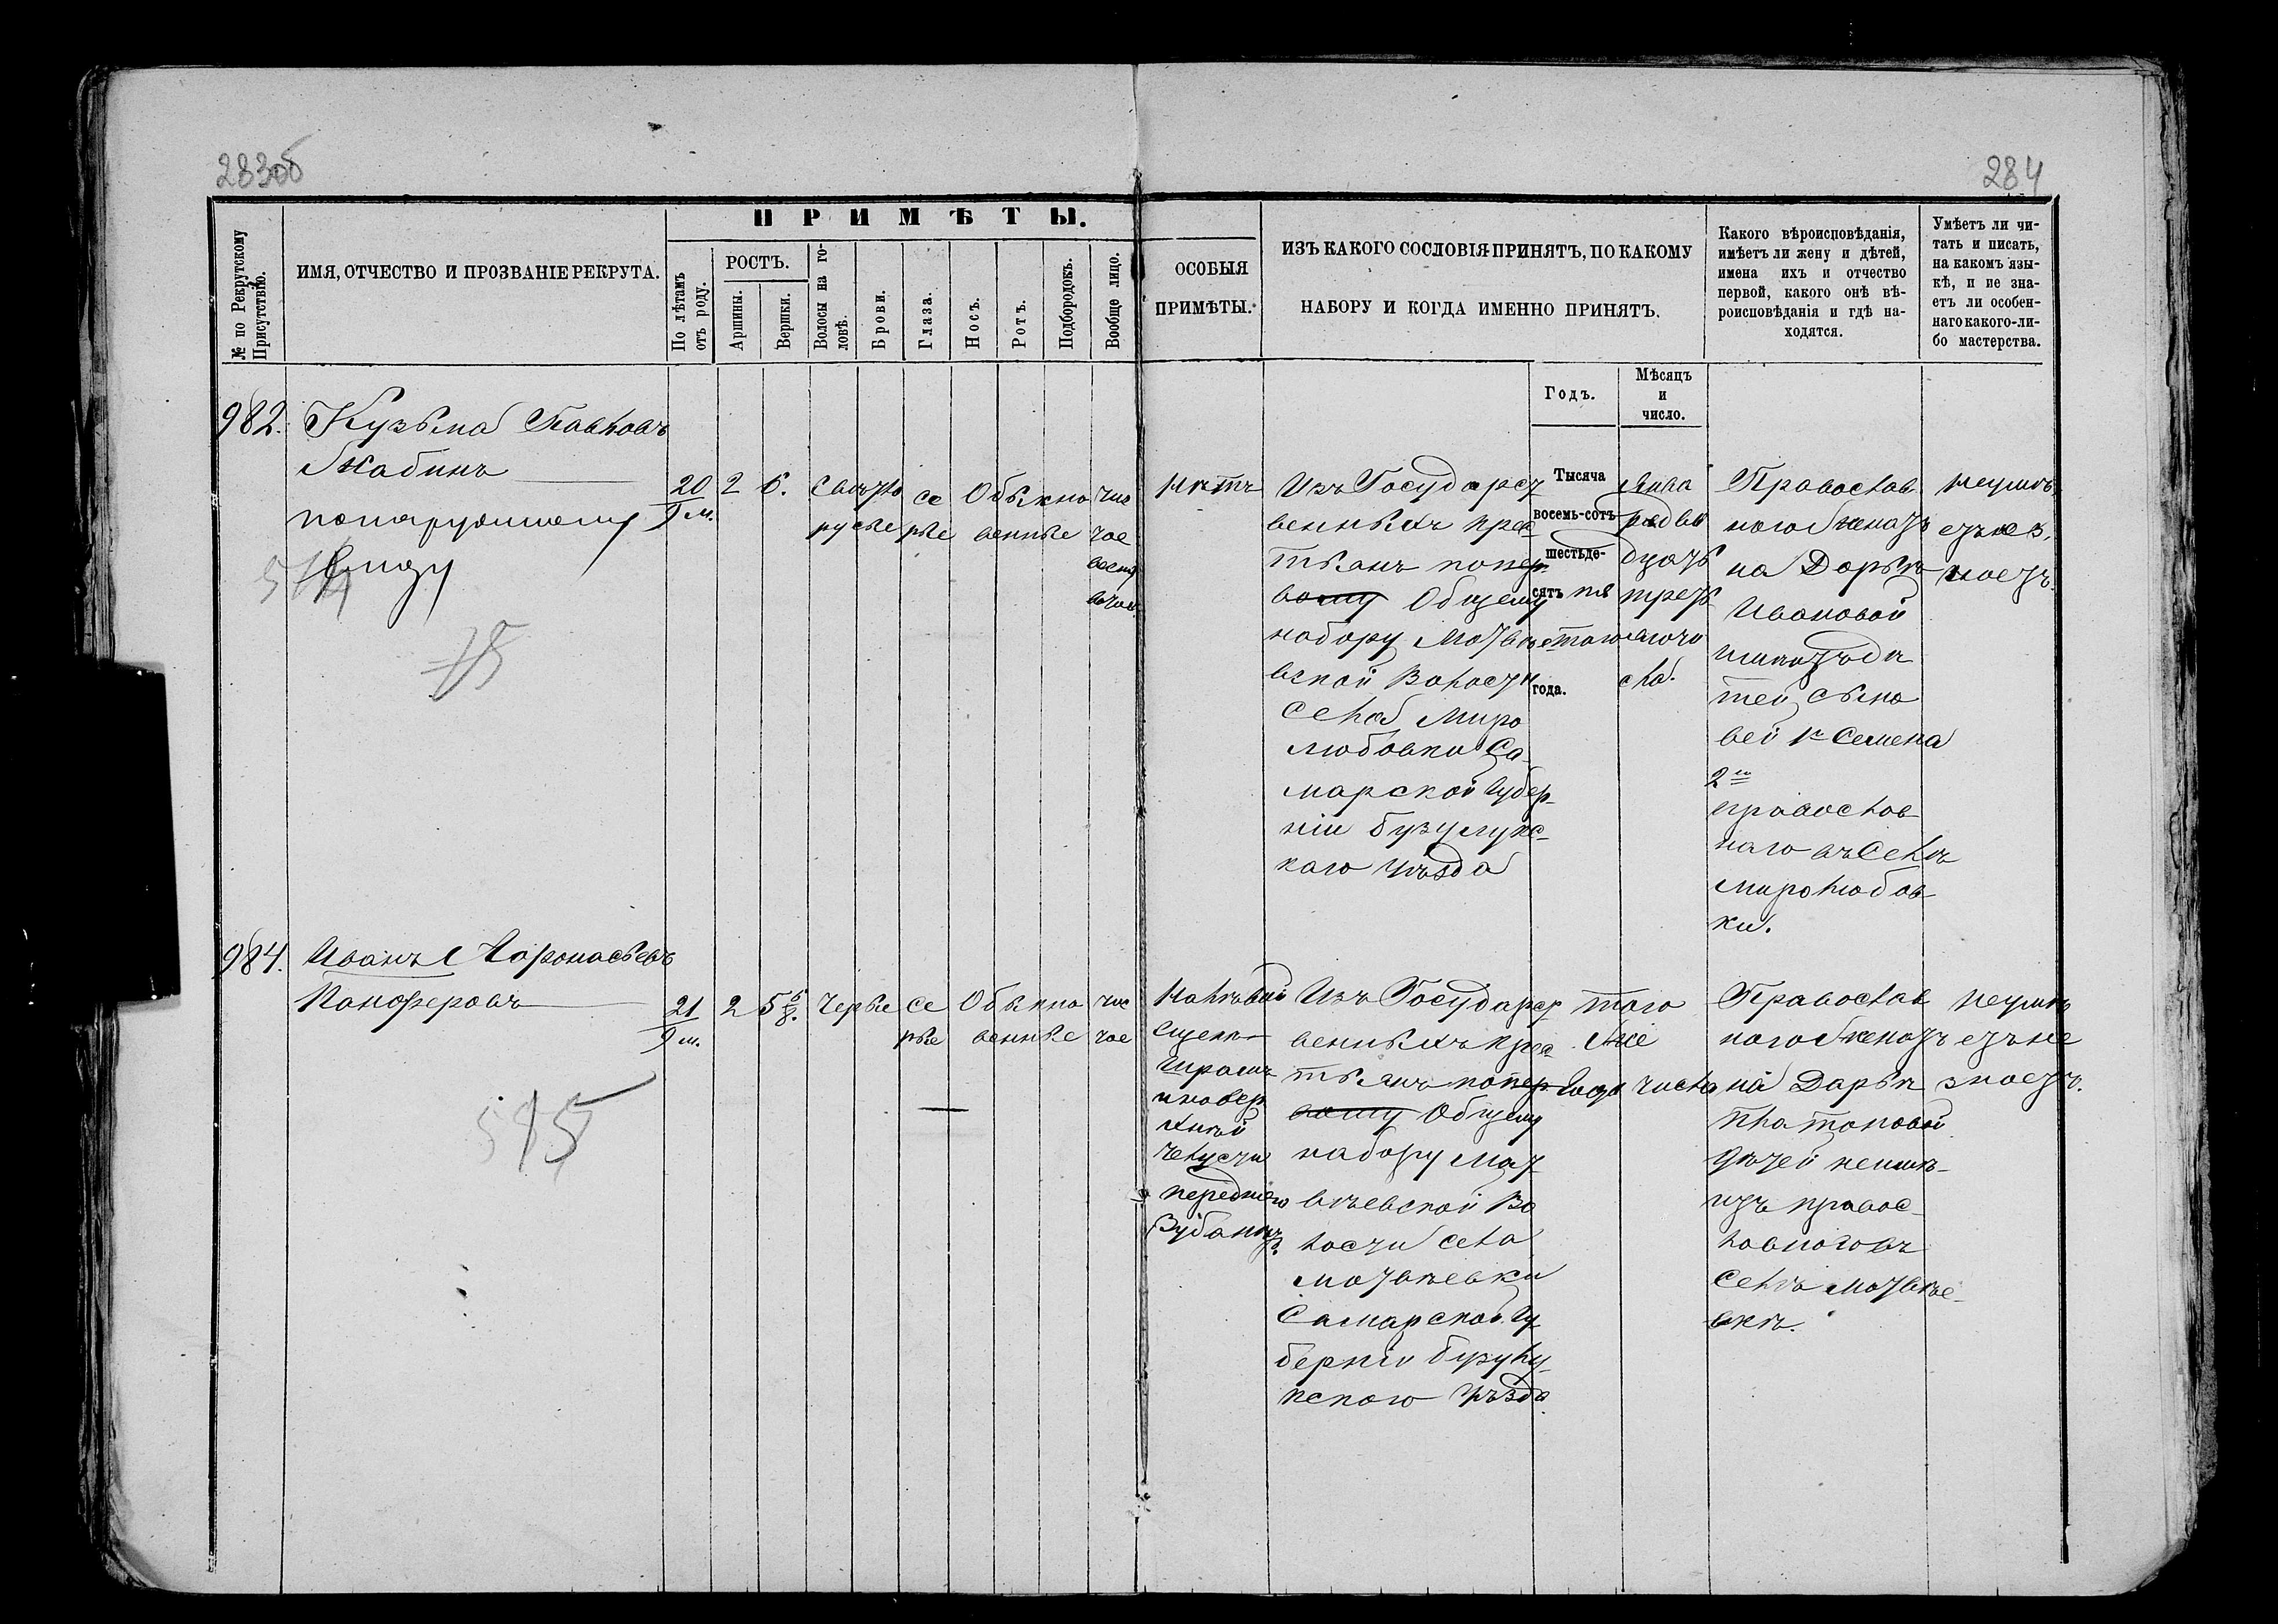 283об
284
ПРИМѢТЫ.
№ по Рекрутскому Присутствію.
ИМЯ, ОТЧЕСТВО И ПРОЗВАНІЕ РЕКРУТА.
По лѣтамъ отъ роду.
РОСТЪ.
Аршины.
Вершки.
Волосы на головѣ.
Брови.
Глаза.
Носъ.
Ротъ.
Подбородокъ.
Вообще лицо.
ОСОБЫЯ
ПРИМѢТЫ.
ИЗЪ КАКОГО СОСЛОВІЯ ПРИНЯТЪ, ПО КАКОМУ
НАБОРУ И КОГДА ИМЕННО ПРИНЯТЪ.
Какого вѣроисповѣданія,
имѣетъ ли жену и дѣтей,
имена ихъ и отчество
первой, какого онѣ вѣ-
роисповѣданія и гдѣ на-
ходятся.
Умѣетъ ли чи-
тать и писать,
на какомъ язы-
кѣ, и не зна-
етъ ли особен-
наго какого-ли-
бо мастерства.
Годъ.
Мѣсяцъ
и
число.
982.
Кузьма Павловъ
Жабинъ
по наружному
виду
20
9 м.
2
6.
Свѣтло
русые
се
рые
Обыкно
венные
чис
тое
нѣтъ
Изъ Государст
венныхъ крес
тьянъ по пер
вому Общему
набору Матвѣ
вской Волости
Села Миро
любовки Са-
марской Губер-
ніи Бузулукс-
каго Уѣзда
Тысяча
восемь-сотъ
шестьде-
сятъ пя
таго
года.
Янва
ря два
дцать
треть
яго чи
сла.
Православ
наго женатъ
на Дарьѣ
Ивановой
имѣетъ дѣ
тей сыно
вей 1е Семена
2й
православ
наго въ Селѣ
Миролюбов
ки.
неумѣ
етъ не з.
наетъ.
984.
Иванъ Афонасьевъ
Панферовъ
21
9 м.
2
5 6/8.
Черные
се
рые
Обыкно
венные
чис
тое
На лѣвой
щекѣ
шрамъ
и на вер
хней
челусти
передняго
Зуба нѣтъ.
Изъ Государст
венныхъ крес
тьянъ по пер
вому Общему
набору Мат
вѣевской Во
лости села
Матвѣевки
Самарской Гу
берніи Бузулу-
кскаго Уѣзда
того
же
года числа
Православ
наго женатъ
на Дарьѣ
Платоновой
дѣтей неимѣ-
етъ правос-
лавнаго въ
Селѣ Матвѣе-
вкѣ.
неумѣ
етъ не
знаетъ.
515